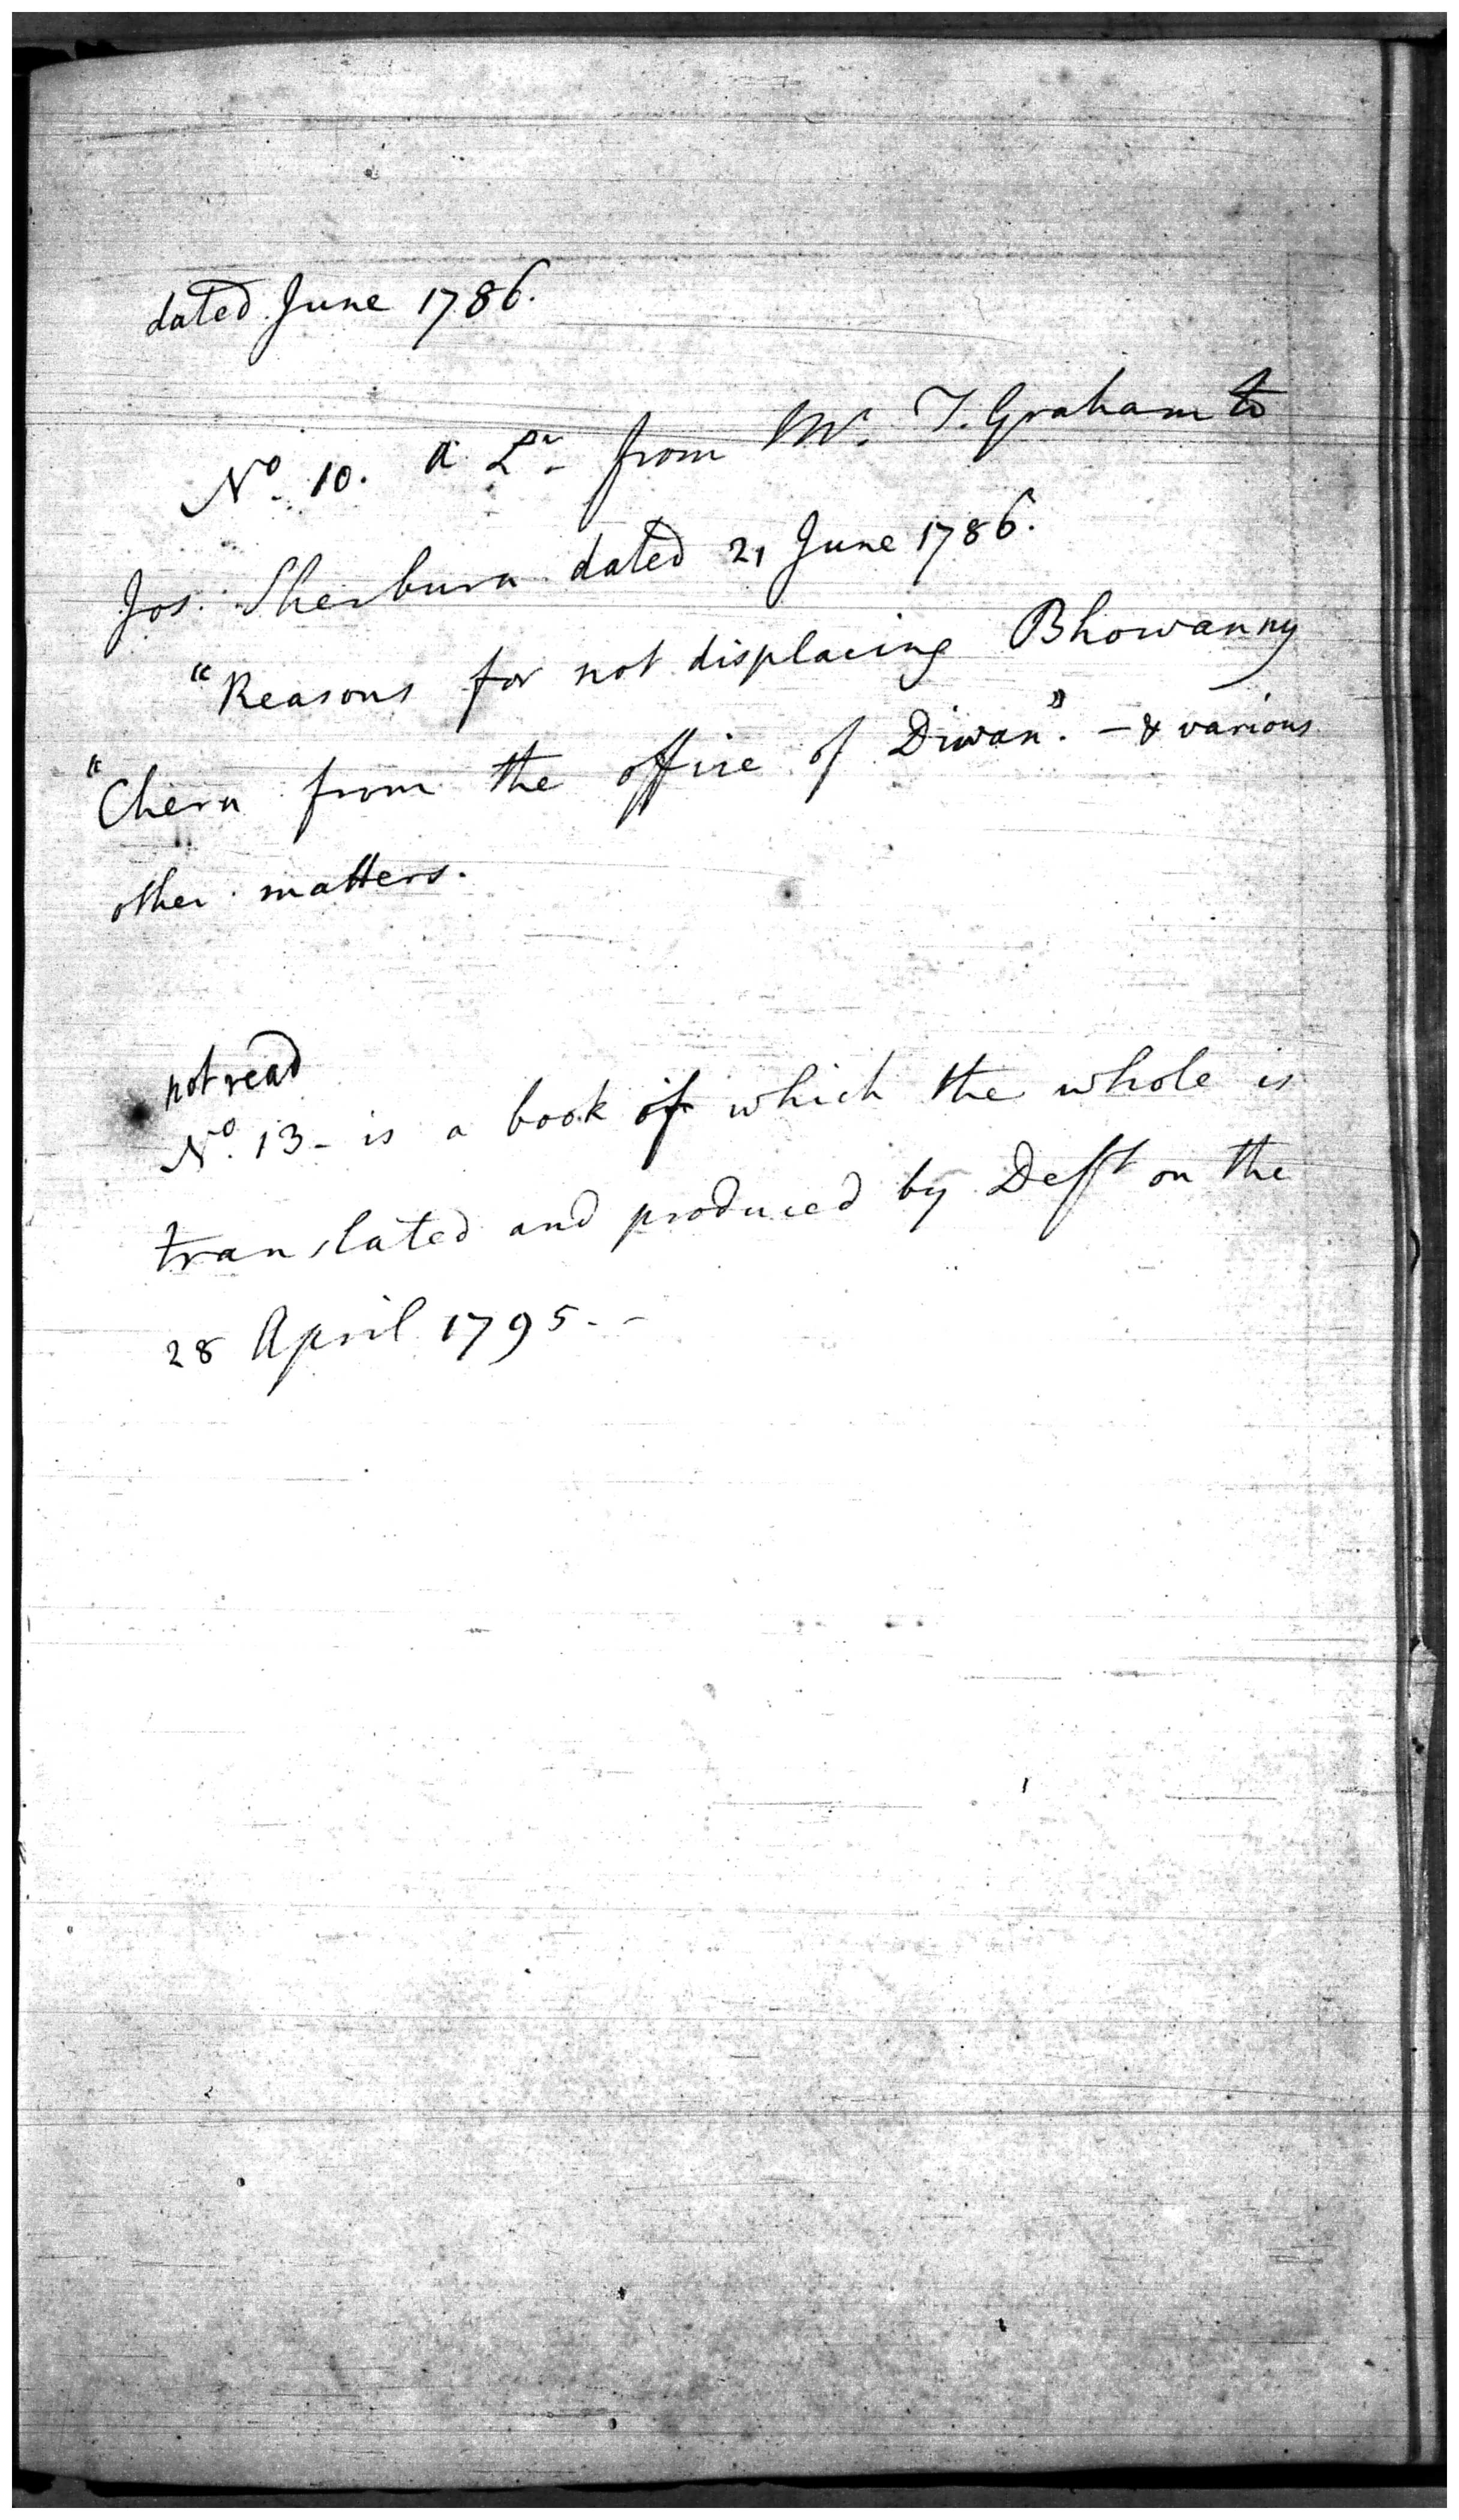 dated June 1786.
No. 10. A Lr from Mr. T. Graham to
Jos. Sherburn dated 21 June 1786.
"Reasons for not displacing Bhowanny
"Chern from the office of Diwan". - & various
other matters.
not read
No. 13 - is a book of which the whole is
translated and produced by Deft on the
28 April 1795. -